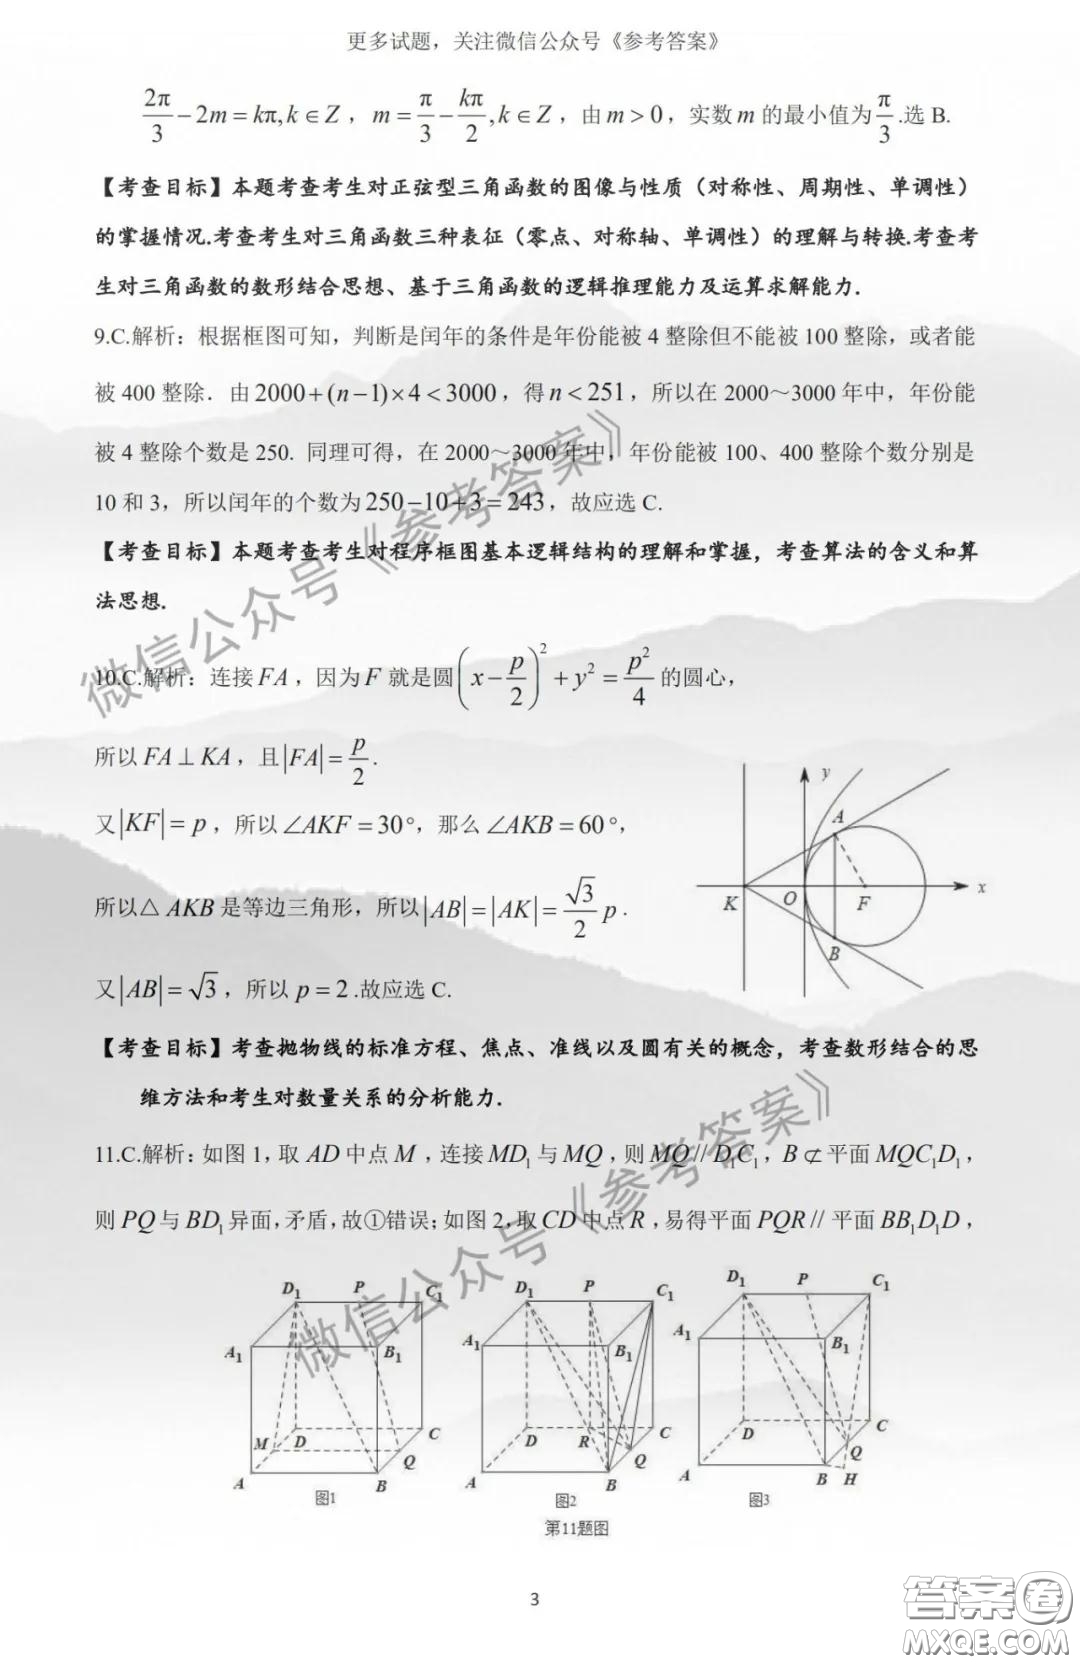 更多试题，关注微信公众号《参考答案》
2π/3 − 2m = kπ, k ∈ Z，m = π/3 − kπ/2, k ∈ Z，由 m > 0，实数 m 的最小值为 π/3 .选 B.
【考查目标】本题考查考生对正弦型三角函数的图像与性质（对称性、周期性、单调性）
的掌握情况.考查考生对三角函数三种表征（零点、对称轴、单调性）的理解与转换.考查考
生对三角函数的数形结合思想、基于三角函数的逻辑推理能力及运算求解能力.
9.C.解析：根据框图可知，判断是闰年的条件是年份能被 4 整除但不能被 100 整除，或者能
被 400 整除．由 2000+(n−1)×4<3000，得 n<251，所以在 2000～3000 年中，年份能
被 4 整除个数是 250. 同理可得，在 2000～3000 年中，年份能被 100、400 整除个数分别是
10 和 3，所以闰年的个数为 250−10+3=243，故应选 C.
【考查目标】本题考查考生对程序框图基本逻辑结构的理解和掌握，考查算法的含义和算
法思想.
10.C.解析：连接 FA，因为 F 就是圆 (x − p/2)² + y² = p²/4 的圆心，
所以 FA ⊥ KA，且 |FA| = p/2 .
又 |KF| = p，所以 ∠AKF = 30°，那么 ∠AKB = 60°，
所以△ AKB 是等边三角形，所以 |AB| = |AK| = √3/2 p .
又 |AB| = √3，所以 p = 2 .故应选 C.
y
A
K
O
F
x
B
【考查目标】考查抛物线的标准方程、焦点、准线以及圆有关的概念，考查数形结合的思
维方法和考生对数量关系的分析能力.
11.C.解析：如图 1，取 AD 中点 M，连接 MD₁ 与 MQ，则 MQ // D₁C₁，B ⊄ 平面 MQC₁D₁，
则 PQ 与 BD₁ 异面，矛盾，故①错误；如图 2，取 CD 中点 R，易得平面 PQR // 平面 BB₁D₁D，
D₁ P C₁
A₁ B₁
M D C
Q
A B
图1
D₁ P C₁
A₁ B₁
D R C
Q
A B
图2
D₁ P C₁
A₁ B₁
D C
Q
A B H
图3
第11题图
3
微信公众号《参考答案》
微信公众号《参考答案》
答案卷
MXQE.COM